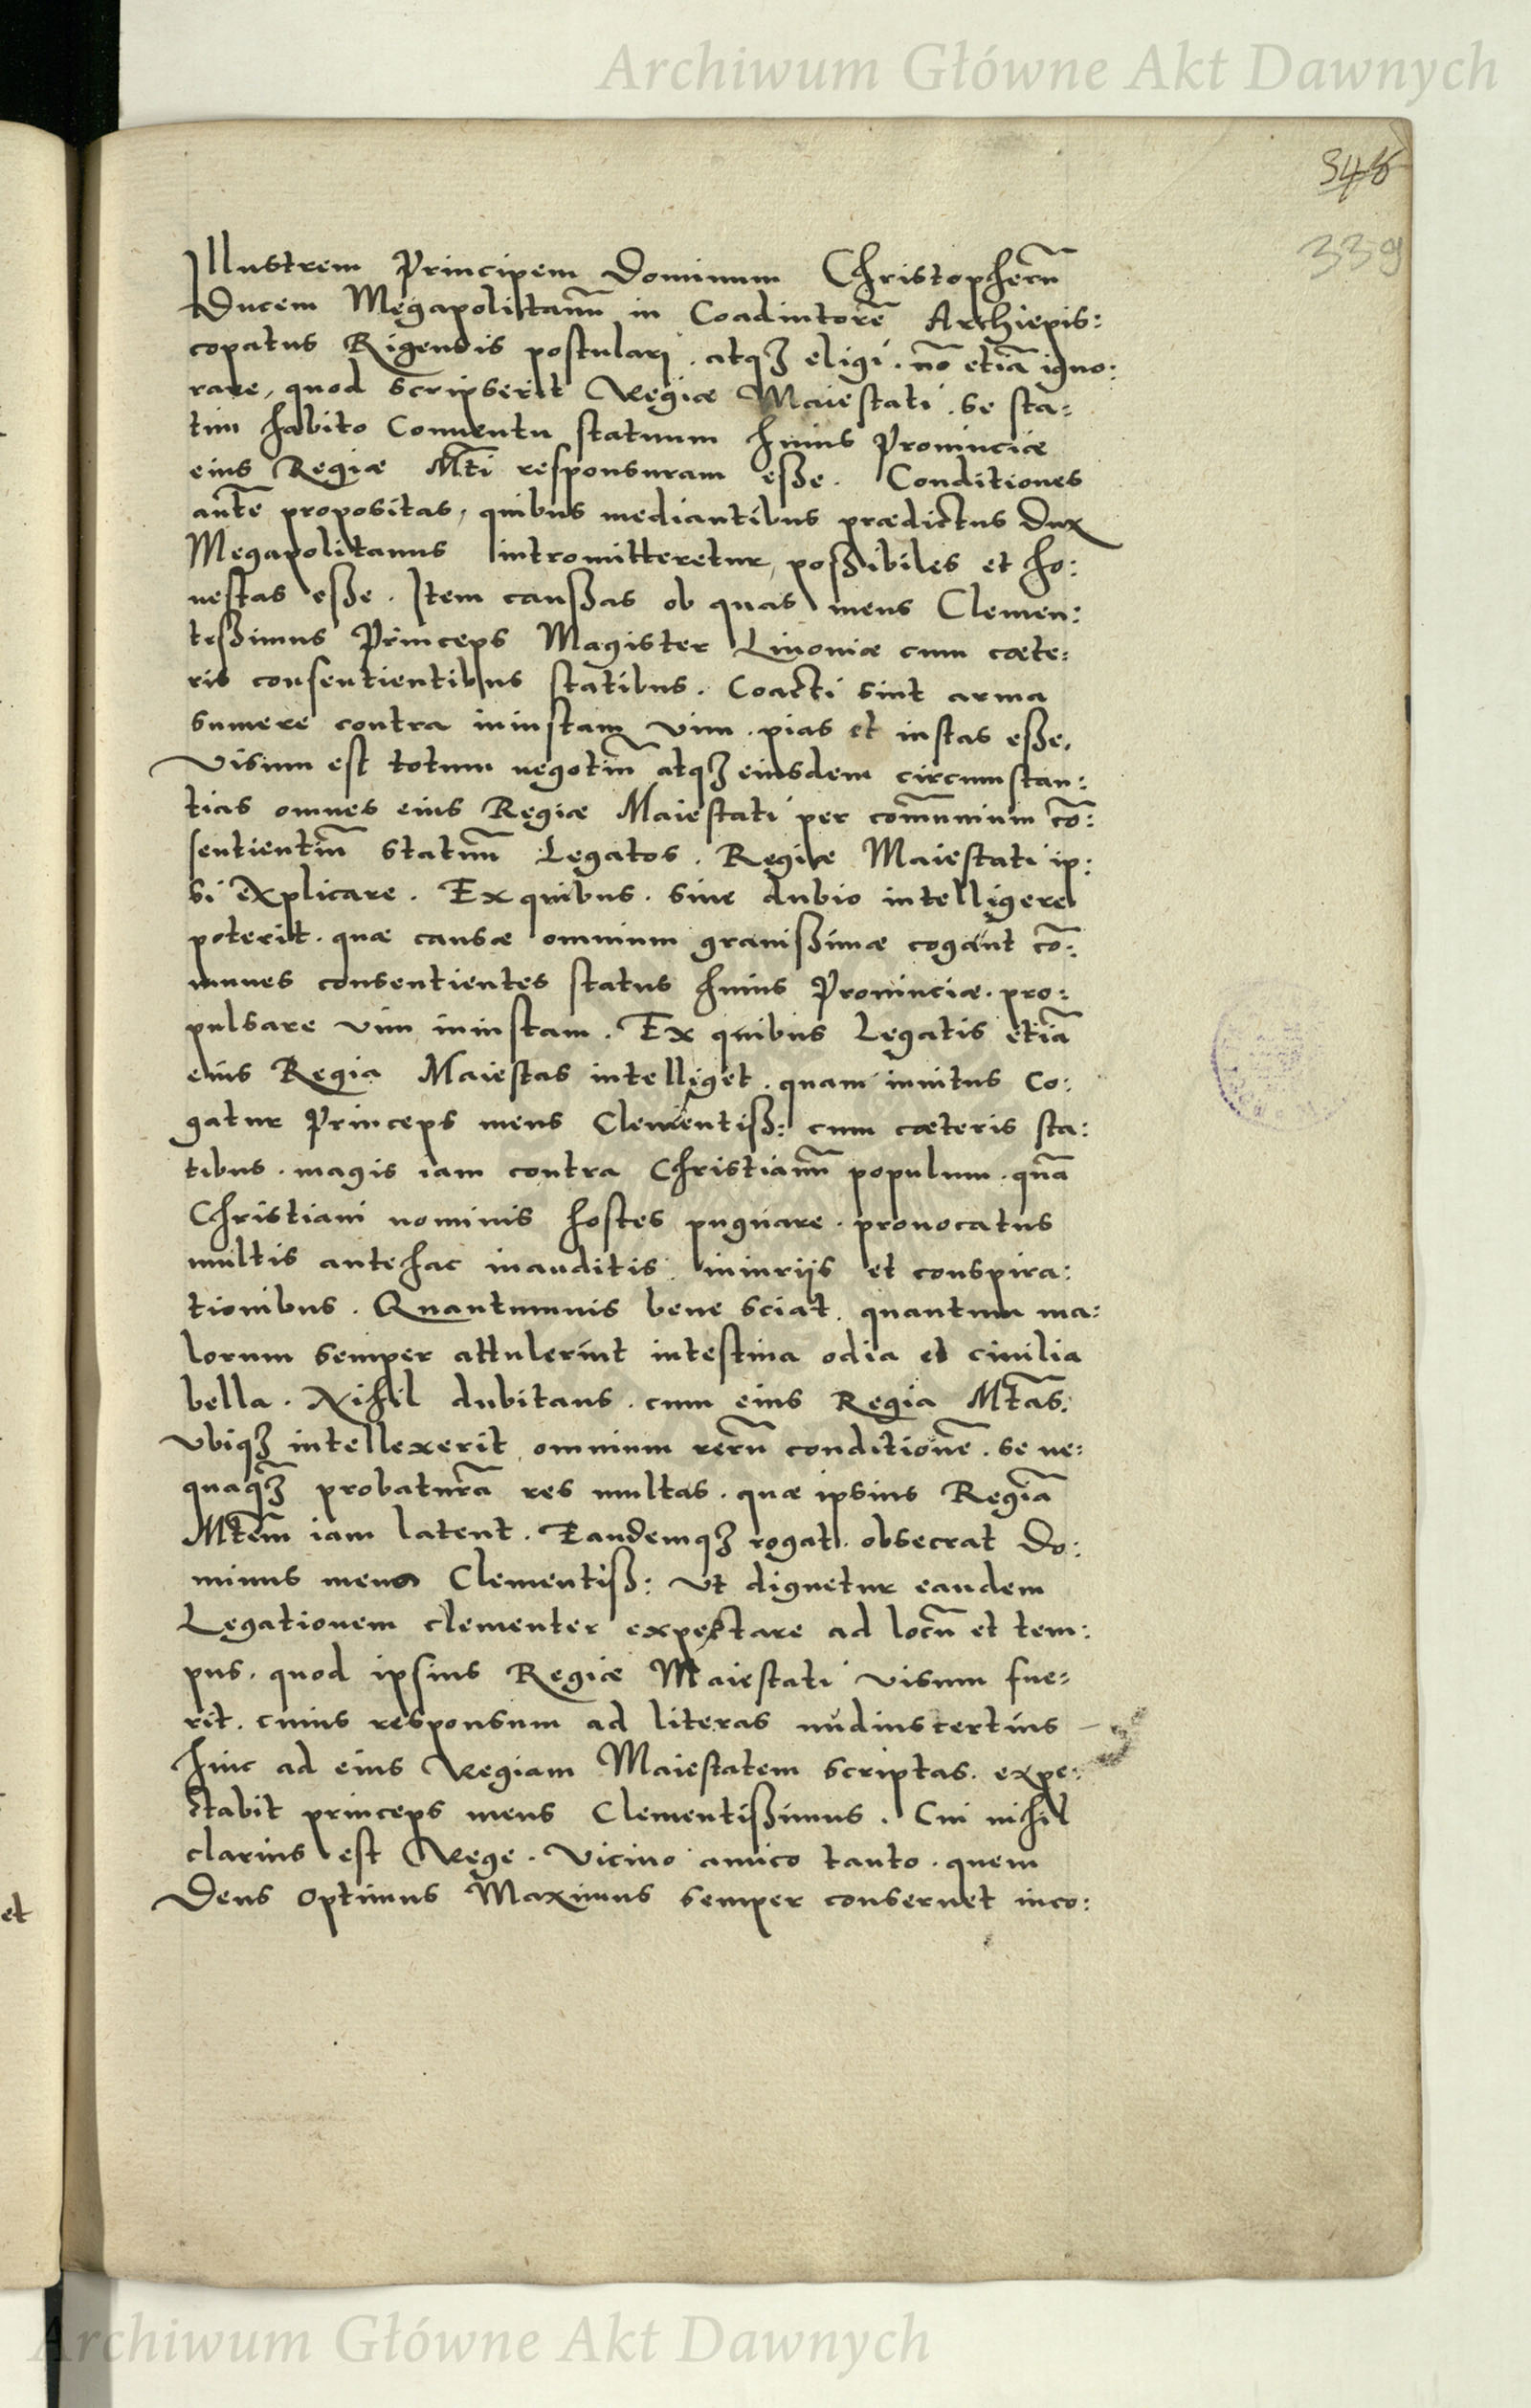 Archiwum Główne Akt Dawnych
346
339
Illustrem Principem Dominum Christopherū
Ducem Megapolitanū in Coadiutorē Archiepis:
copatus Rigensis postulari . atqꝫ eligi . nō etiā igno:
rare, quod scripserit Regiæ Maiestati . se sta:
tim habito Conuentu statuum huius Prouinciæ
eius Regiæ Mt̄i responsuram eße . Conditiones
ante propositas, quibus mediantibus prædictus Dux
Megapolitanus intromitteretur, poßibiles et ho:
nestas eße . Item caußas ob quas meus Clemen:
tißimus Princeps Magister Liuoniæ cum cæte:
ris consentientibus statibus . Coacti sint arma
sumere contra iniustam vim . pias et iustas eße,
Visum est totum negotiū atqꝫ eiusdem circumstan:
tias omnes eius Regiæ Maiestati per com̄unium cō:
sentientiū statuū Legatos . Regiæ Maiestati ip:
si explicare . Ex quibus . sine dubio intelligere
poterit . quæ causæ omnium grauißimæ cogant cō:
munes consentientes status huius Prouinciæ . pro:
pulsare vim iniustam . Ex quibus Legatis etiā
eius Regia Maiestas intelliget . quam inuitus co:
gatur Princeps meus Clementiß: cum cæteris sta:
tibus . magis iam contra Christianū populum . quā
Christiani nominis hostes pugnare . prouocatus
multis antehac inauditis iniurijs et conspira:
tionibus . Quantumuis bene sciat . quantum ma:
lorum semper attulerint intestina odia et ciuilia
bella . Nihil dubitans . cum eius Regia Mt̄as.
Vbiqꝫ intellexerit omnium rerū conditionē . se ne:
quaqꝫ̄ probaturā res multas . quæ ipsius Regiā
Mt̄em iam latent . Eandemqꝫ rogat . obsecrat Do:
minus meus Clementiß: Vt dignetur eandem
Legationem clementer expectare ad locū et tem:
pus . quod ipsius Regiæ Maiestati visum fue:
rit . cuius responsum ad literas nudiustertius
hinc ad eius Regiam Maiestatem scriptas . expe:
ctabit princeps meus Clementißimus . Cui nihil
clarius est Rege . Vicino amico tanto . quem
Deus Optimus Maximus semper conseruet inco:
et
Archiwum Główne Akt Dawnych